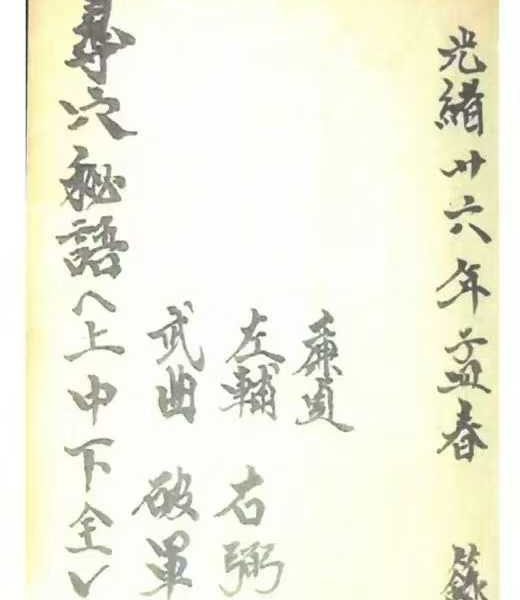 光緒廿六年孟春
廉貞
左輔 右弼
武曲 破軍
尋穴秘語（上中下全）